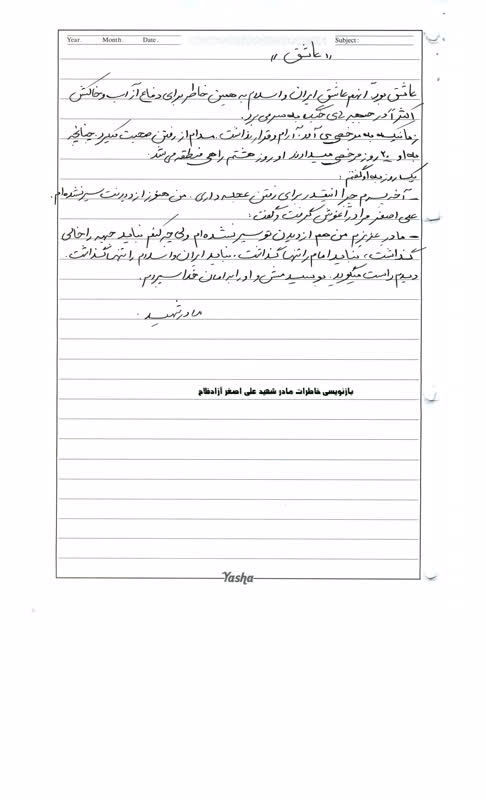 Year. Month. Date. Subject:
«عاشق»
عاشق بود آنهم عاشق ایران و اسلام به همین خاطر برای دفاع از آب و خاکش
اکثراً در جبهه های جنگ به سر می برد.
زمانیکه به مرخصی می آمد آرام و قرار نداشت. مدام از رفتن صحبت میکرد. چنانچه
به او ۲۰ روز مرخصی میدادند او روز هشتم راهی منطقه می شد.
یک روز به او گفتم:
- آخه پسرم چرا اینقدر برای رفتن عجله داری. من هنوز از دیدنت سیر نشده ام
علی اصغر مرا در آغوش گرفت و گفت:
- مادر عزیزم من هم از دیدن تو سیر نشده ام ولی چه کنم نباید جبهه را خالی
گذاشت، نباید امام را تنها گذاشت، نباید ایران و اسلام را تنها گذاشت.
دیدم راست میگوید. بوسیدمش و او را به امان خدا سپردم.
مادر شهید.
بازنویسی خاطرات مادر شهید علی اصغر آزادفلاح
Yasha